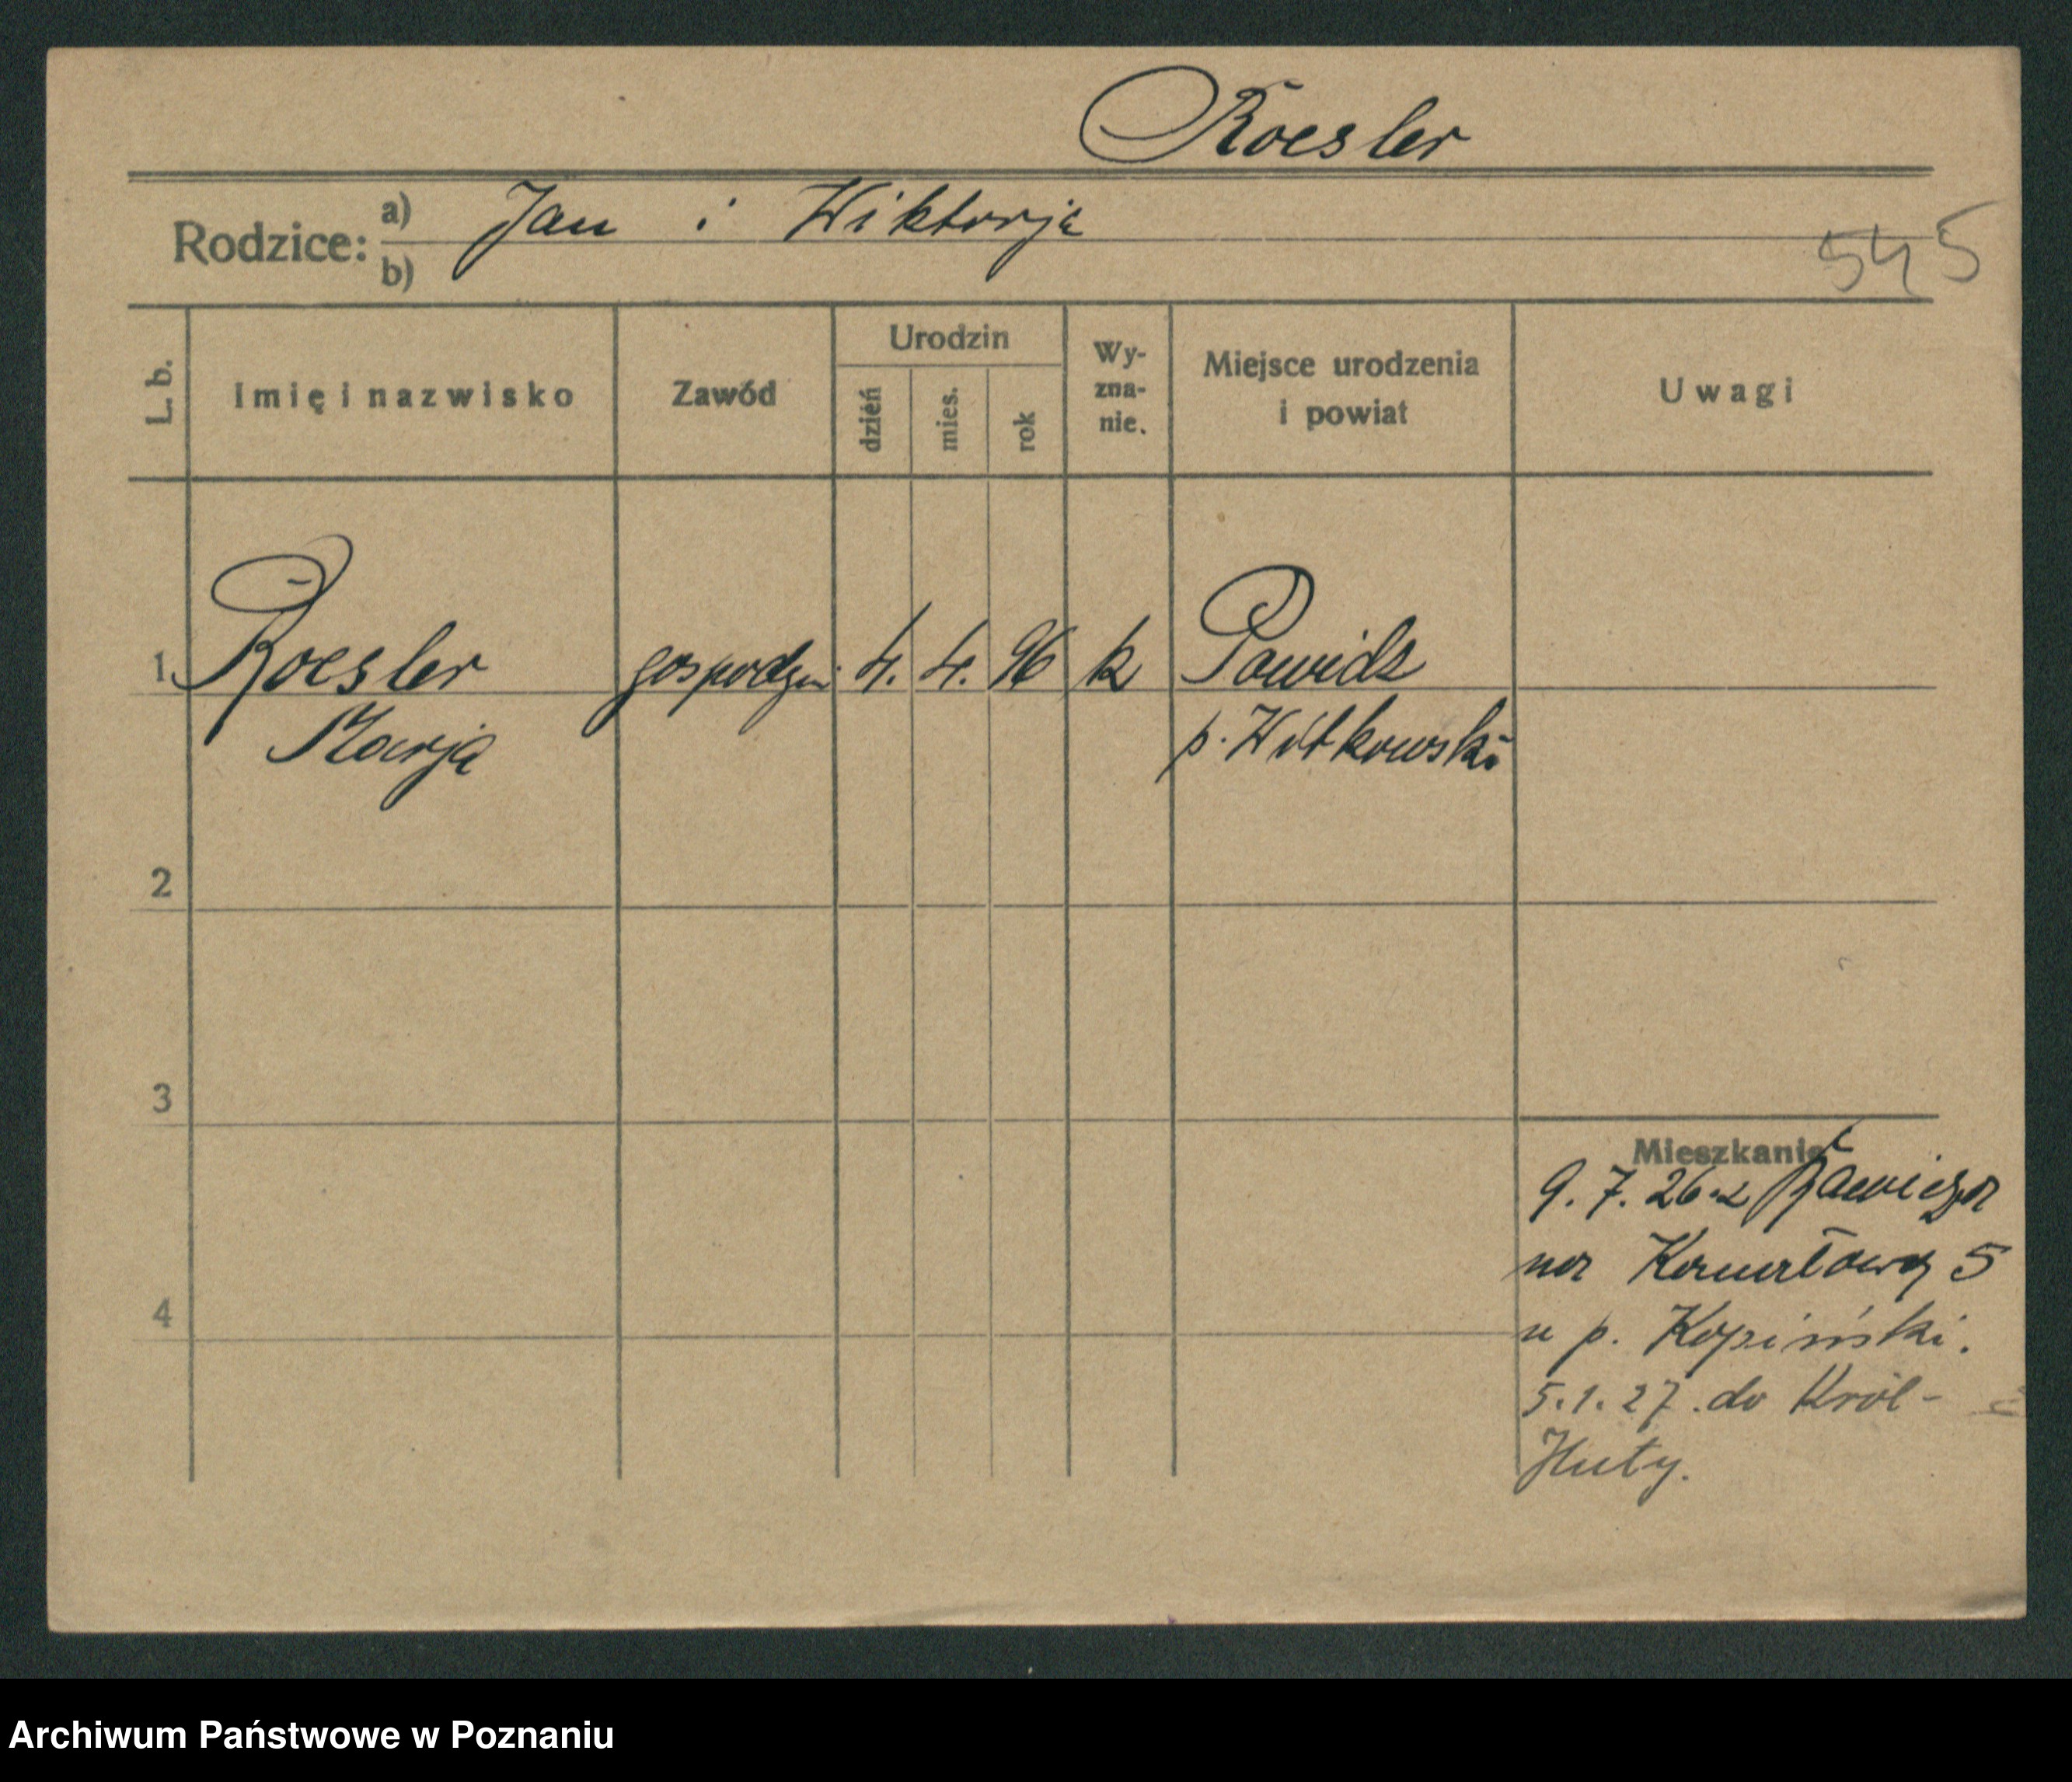 Roesler
Rodzice: a) Jan i Wiktorja
b)
545
L. b.
Imię i nazwisko
Zawód
Urodzin
dzień
mies.
rok
Wy-
zna-
nie.
Miejsce urodzenia
i powiat
Uwagi
1. Roesler gospodyni 4. 4. 96 k Powidz
Marja p. Witkowski
2
3
4
Mieszkanie
9.7.26 z Rawicza
na 5
u p. Kopiński.
5.1.27. do Król-
Huty.
Archiwum Państwowe w Poznaniu